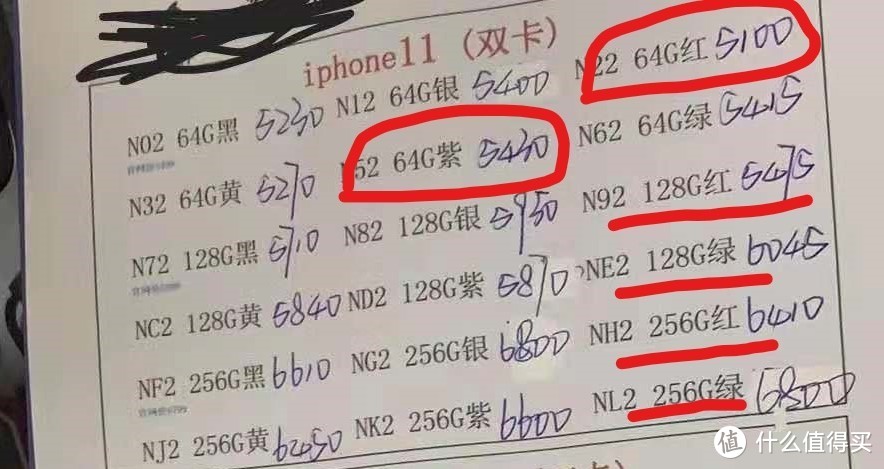 iphone11 (双卡)
N02 64G黑 5230 N12 64G银 5400 N22 64G红 5100
N32 64G黄 5270 N52 64G紫 5430 N62 64G绿 5415
N72 128G黑 5710 N82 128G银 5950 N92 128G红 5475
NC2 128G黄 5840 ND2 128G紫 5870 NE2 128G绿 6045
NF2 256G黑 6610 NG2 256G银 6800 NH2 256G红 6410
NJ2 256G黄 6450 NK2 256G紫 6600 NL2 256G绿 6800
值 什么值得买